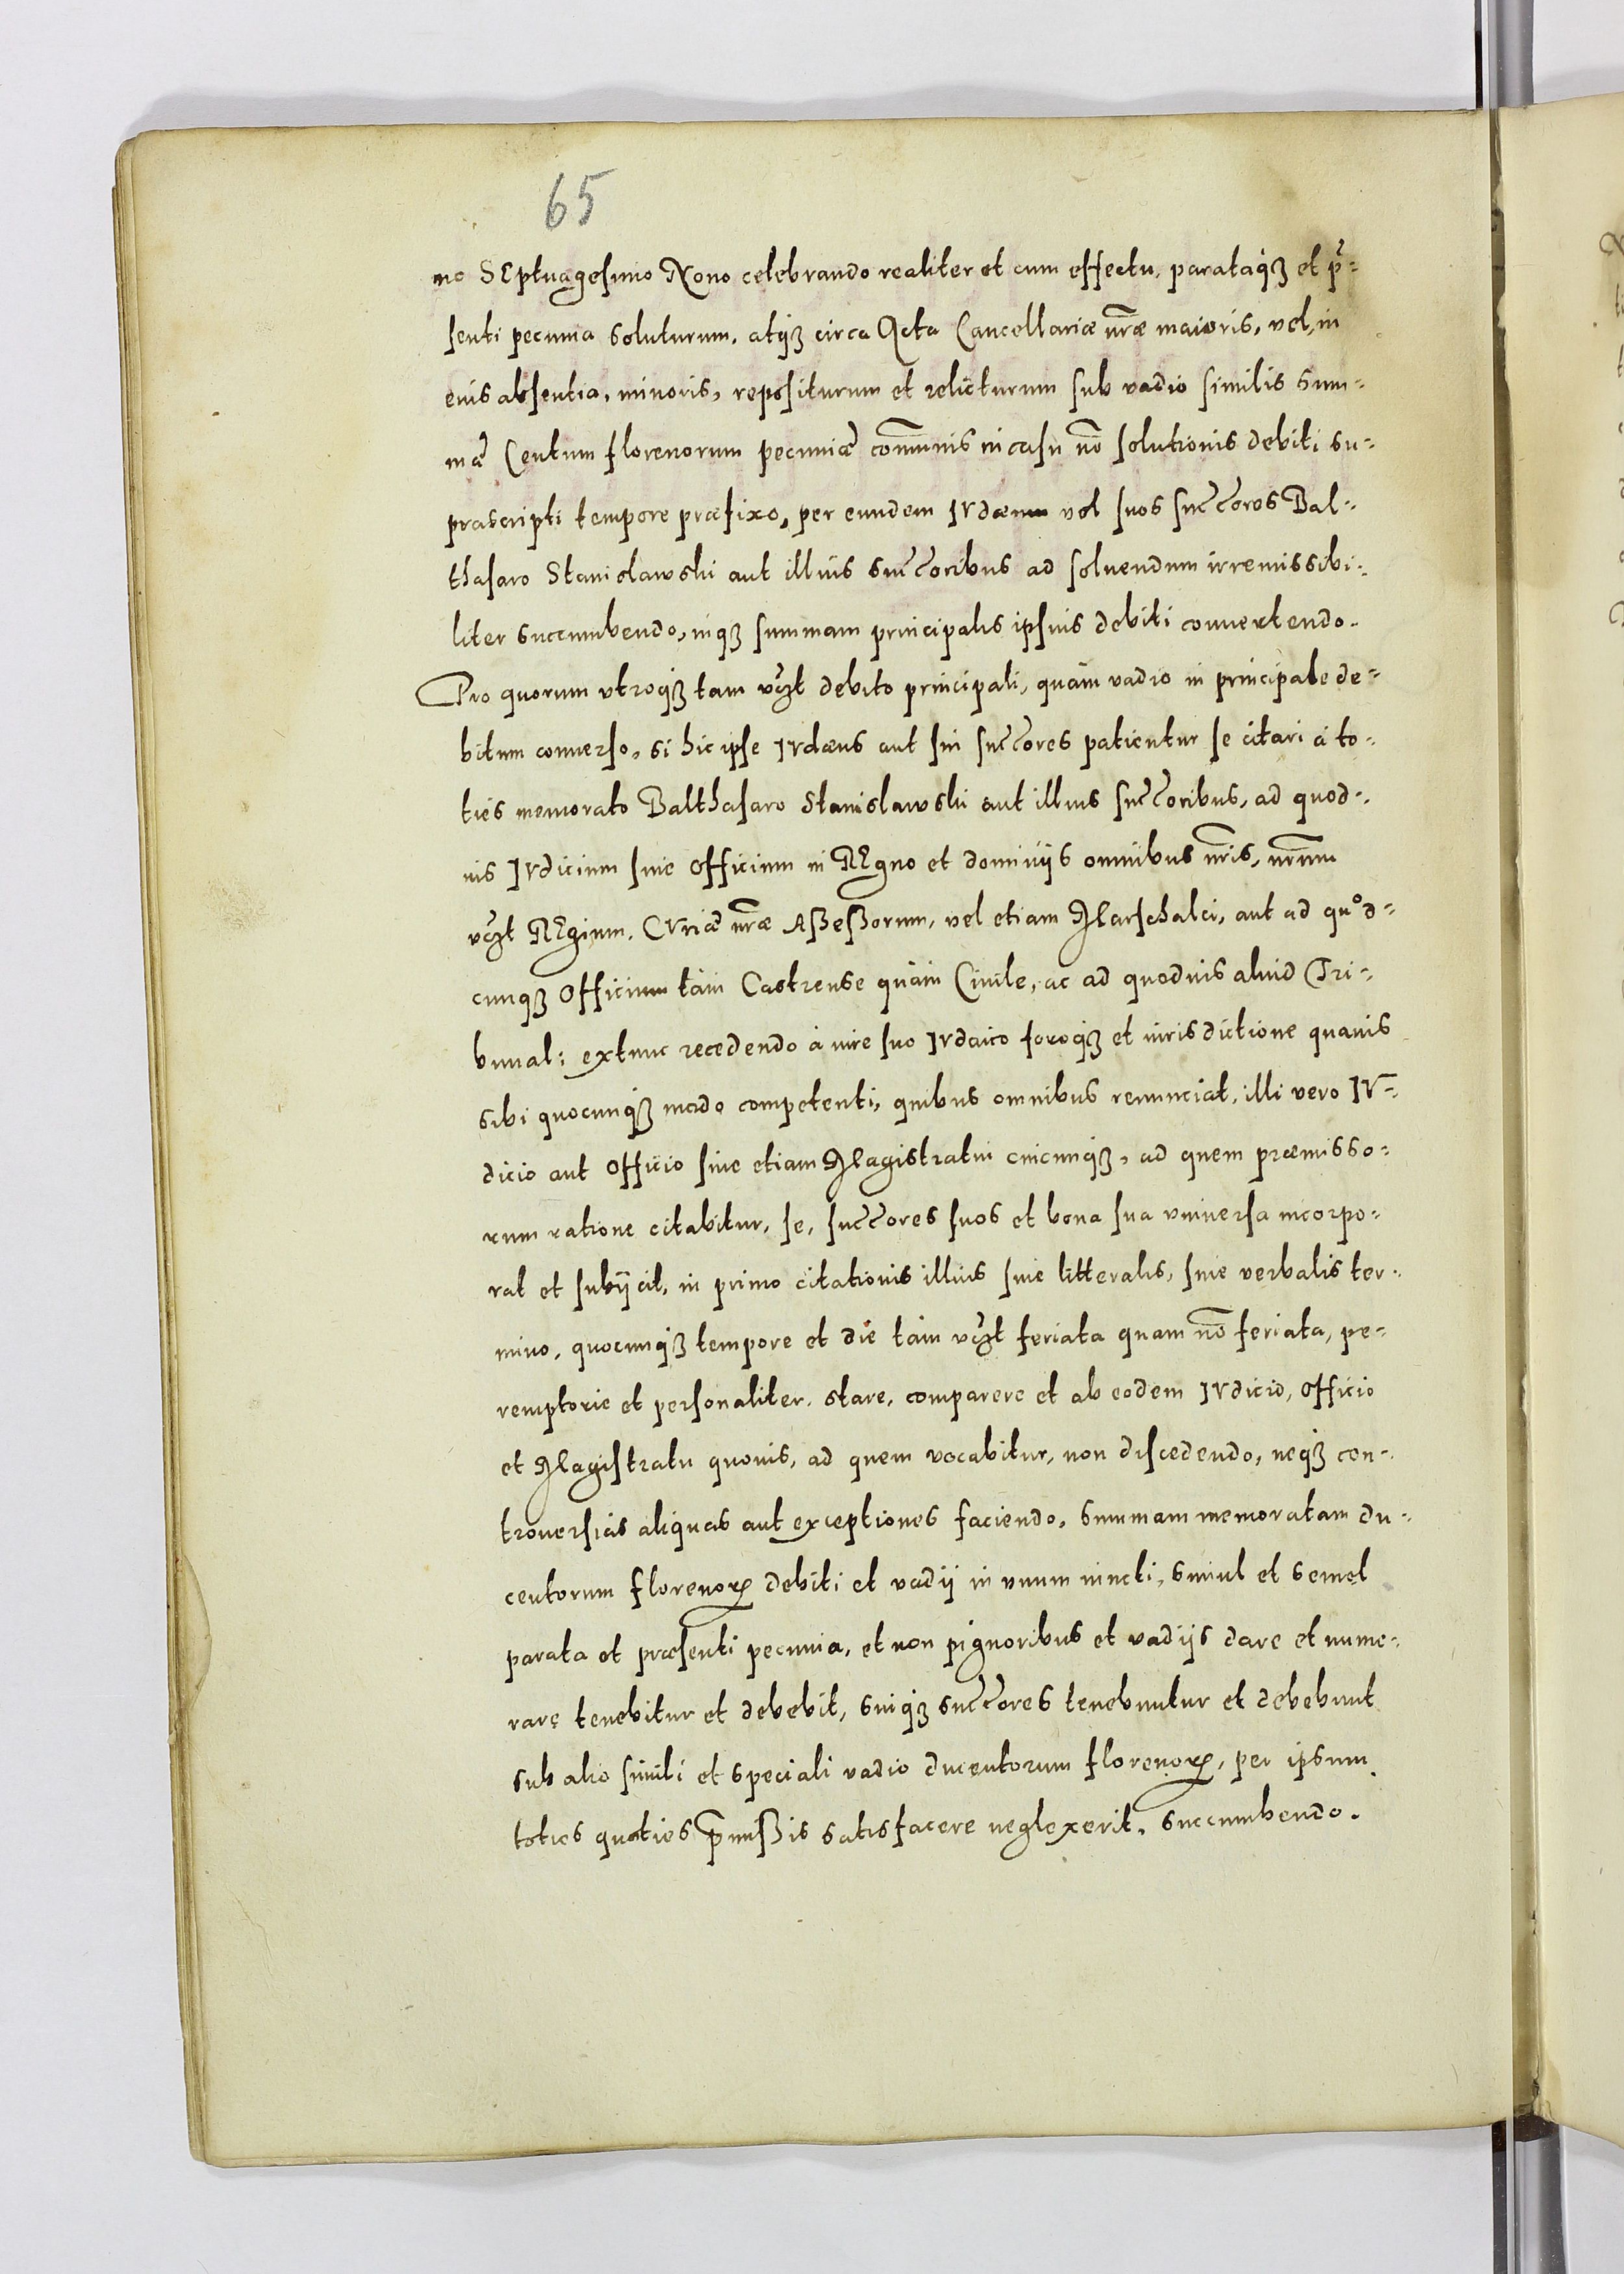 65
mo SEptuagesimo Nono celebrando realiter et cum effectu, parataqꝫ et p̃-
senti pecunia soluturum, atqꝫ circa Acta Cancellariæ nr̃æ maioris, vel, in
eius absentia, minoris, repositurum et relicturum sub vadio similis sum-
mæ Centum florenorum pecuniæ com̃unis in casu nõ solutionis debiti su-
prascripti tempore præfixo, per eundem IVdæum vel suos succ̃ores Bal-
thasaro Stanislawski aut illius succ̃oribus ad soluendum irremissibi-
liter succumbendo, inqꝫ summam principalis ipsius debiti conuertendo.
Pro quorum vtroqꝫ tam vcꝫt debito principali, quàm vadio in principale de-
bitum conuerso, si hic ipse IVdæus aut sui succ̃ores patientur se citari à to-
ties memorato Balthasaro Stanislawski aut illius succ̃oribus, ad quod-
uis IVdicium siue Officium in REgno et dominijs omnibus nr̃is, nr̃um
vcꝫt REgium, CVriæ nr̃æ Aßeßorum, vel etiam Marschalci, aut ad quod-
cunqꝫ Officium tàm Castrense quàm Ciuile, ac ad quoduis aliud Tri-
bunal: extunc recedendo à iure suo IVdaico foroqꝫ et iurisdictione quauis
sibi quocunqꝫ modo competenti, quibus omnibus renunciat, illi vero IV-
dicio aut Officio siue etiam Magistratui cuicunqꝫ, ad quem præmisso-
rum ratione citabitur, se, succ̃ores suos et bona sua vniuersa incorpo-
rat et subijcit, in primo citationis illius siue litteralis, siue verbalis ter-
mino, quocunqꝫ tempore et die tàm vcꝫt feriata quam nõ feriata, pe-
remptorie et personaliter stare, comparere et ab eodem IVdicio, Officio
et Magistratu quouis, ad quem vocabitur, non discedendo, neqꝫ con-
trouersias aliquas aut exceptiones faciendo, summam memoratam du-
centorum florenoꝝ debiti et vadij in vnum iuncti, simul et semel
parata et præsenti pecunia, et non pignoribus et vadijs dare et nume-
rare tenebitur et debebit, suiqꝫ succ̃ores tenebuntur et debebunt
sub alio simili et speciali vadio ducentorum florenoꝝ, per ipsum
toties quoties p̃mißis satisfacere neglexerit, succumbendo.